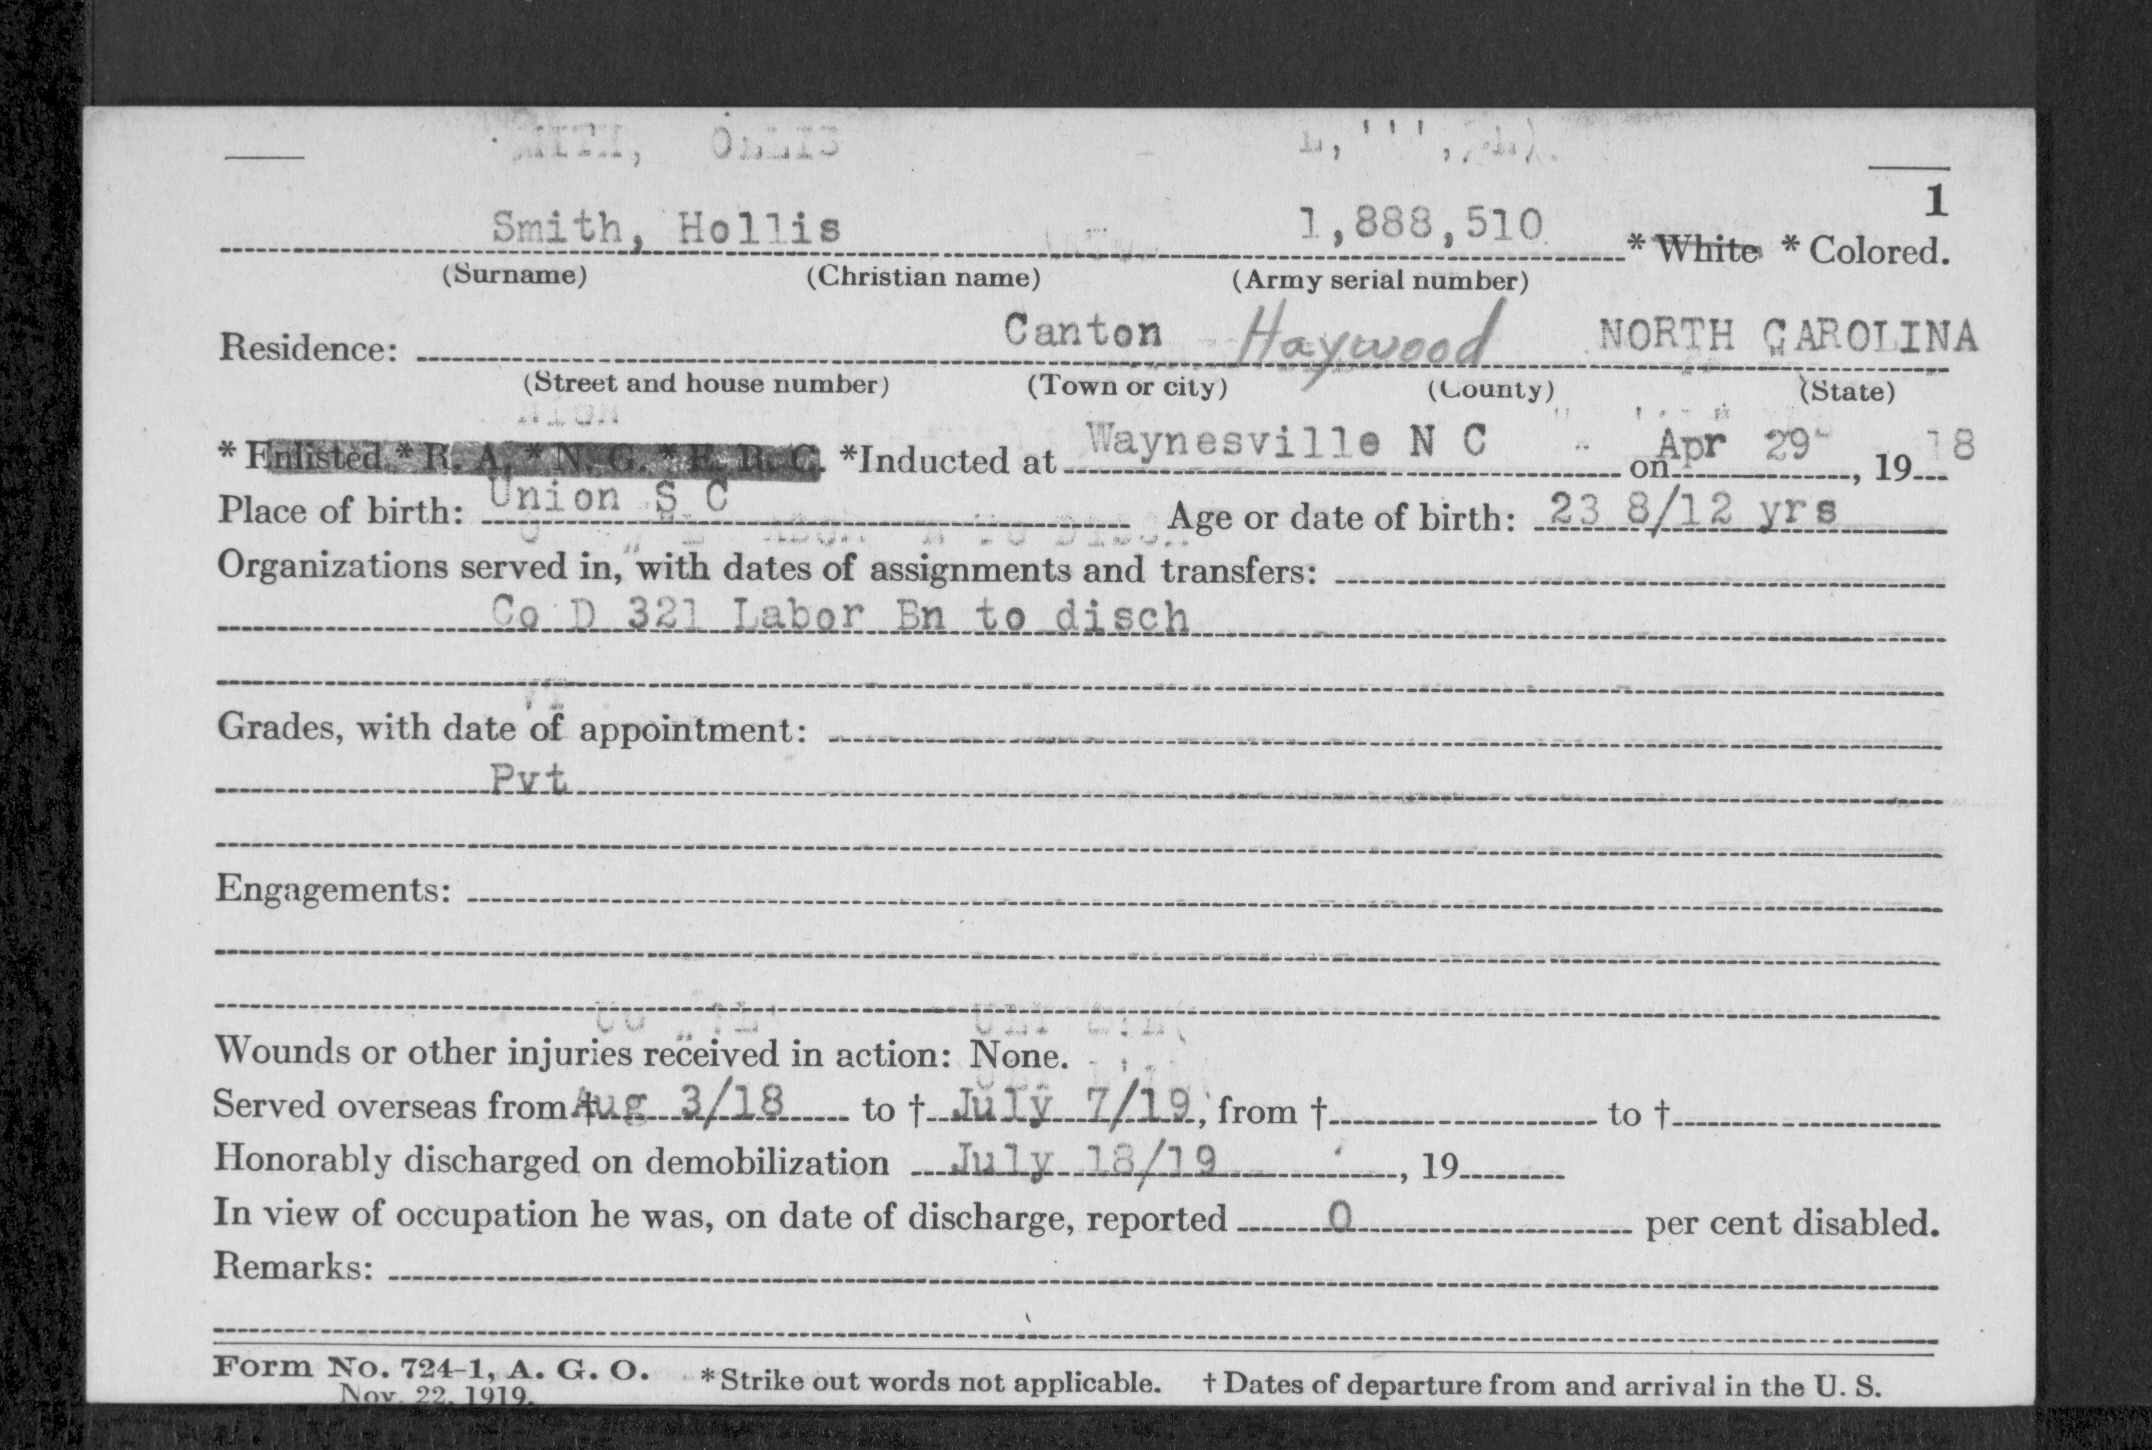 1
Smith, Hollis 1,888,510 * White * Colored.
(Surname) (Christian name) (Army serial number)
Residence: Canton Haywood NORTH CAROLINA
(Street and house number) (Town or city) (County) (State)
* Enlisted * R. A. * N. G. * E. R. C. *Inducted at Waynesville N C on Apr 29, 1918
Place of birth: Union S C Age or date of birth: 23 8/12 yrs
Organizations served in, with dates of assignments and transfers:
Co D 321 Labor Bn to disch
Grades, with date of appointment:
Pvt
Engagements:
Wounds or other injuries received in action: None.
Served overseas from † Aug 3/18 to † July 7/19, from † to †
Honorably discharged on demobilization July 18/19, 19
In view of occupation he was, on date of discharge, reported 0 per cent disabled.
Remarks:
Form No. 724-1, A. G. O. *Strike out words not applicable. † Dates of departure from and arrival in the U. S.
Nov. 22, 1919.